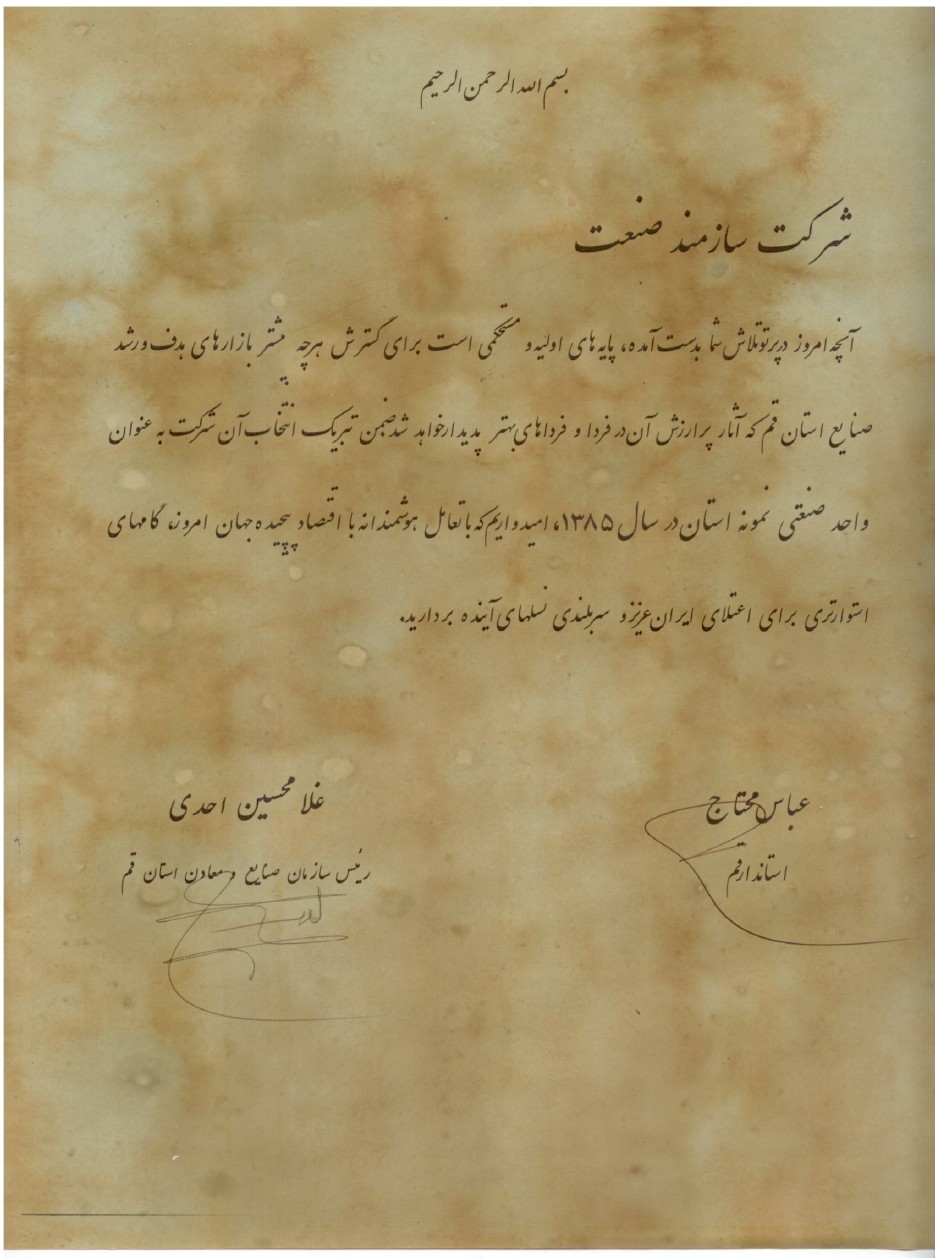 بسم الله الرحمن الرحیم
شرکت سازمند صنعت
آنچه امروز در پرتو تلاش شما بدست آمده، پایه های اولیه و مستحکمی است برای گسترش هرچه بیشتر بازارهای هدف و رشد
صنایع استان قم که آثار پرارزش آن در فردا و فرداهای بهتر پدیدار خواهد شد ضمن تبریک انتخاب آن شرکت به عنوان
واحد صنعتی نمونه استان در سال ۱۳۸۵، امیدواریم که با تعامل هوشمندانه با اقتصاد پیچیده جهان امروز، گامهای
استوارتری برای اعتلای ایران عزیز و سربلندی نسلهای آینده بردارید.
عباس محتاج
استاندار قم
غلامحسین احدی
رئیس سازمان صنایع و معادن استان قم